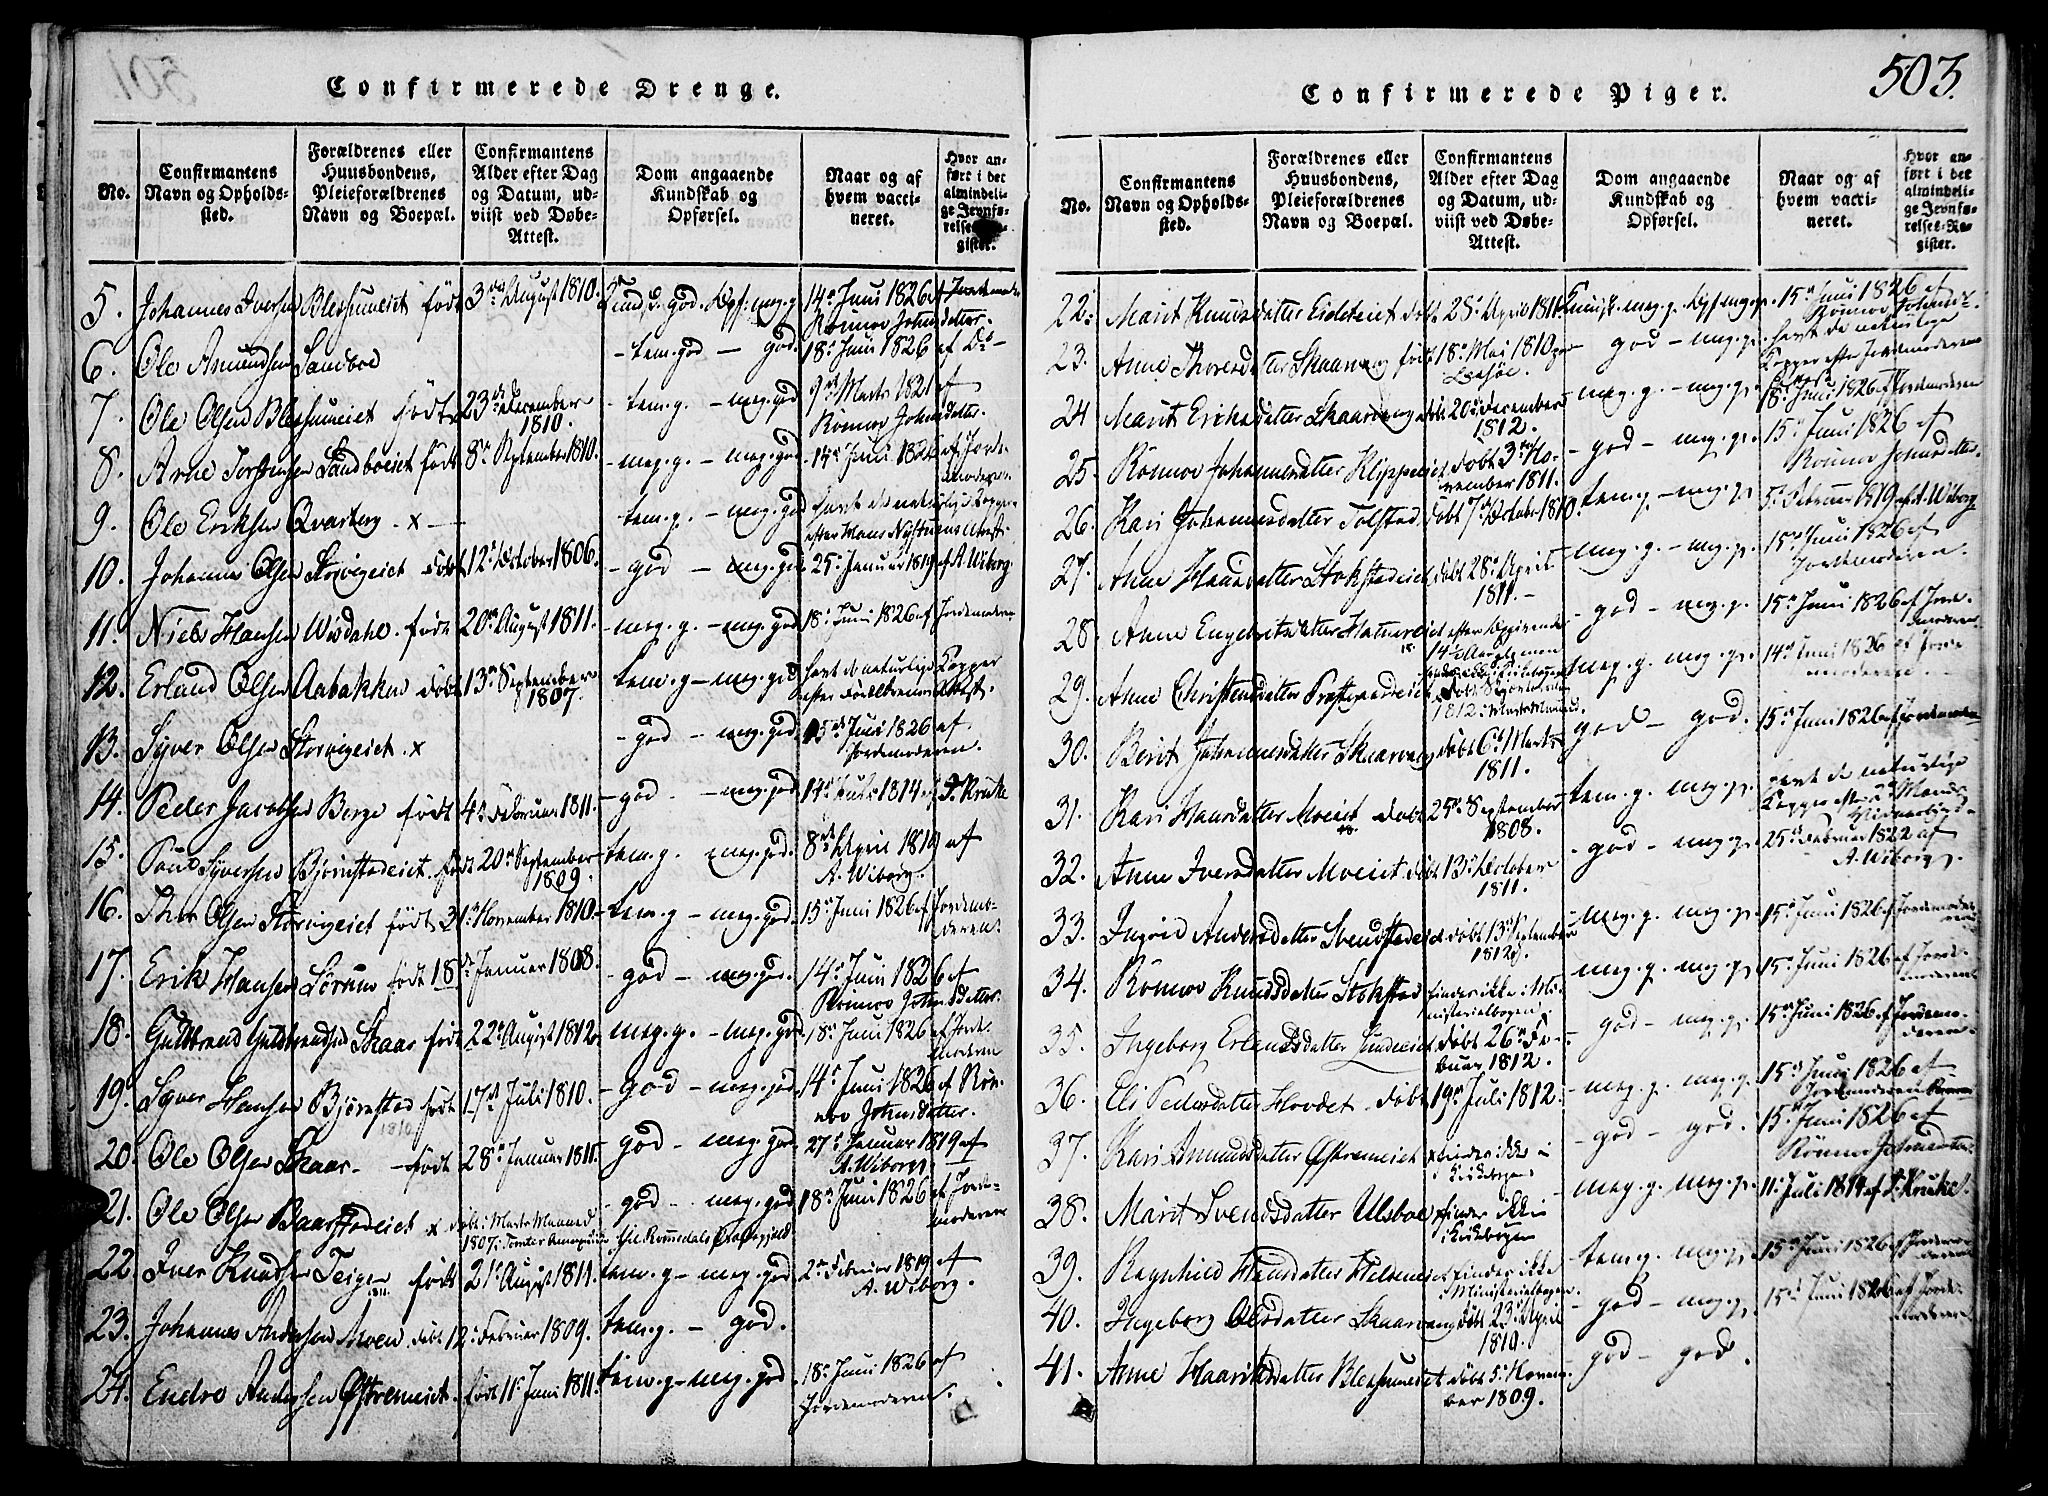 Confirmerede Drenge.
No.
Confirmantens Navn og Opholdssted.
Forældrenes eller Huusbondens, Pleieforældrenes Navn og Boepæl.
Confirmantens Alder efter Dag og Datum, udviist ved Døbe-Attest.
Dom angaaende Kundskab og Opførsel.
Naar og af hvem vaccineret.
Hvor anført i det almindelige Jevnførelses-Register.
5. Johannes Iversen født 3die August 1810. god. meg. g. 14de Juni 1826 af
Rønnov Johnsdatter.
6. Ole Amundsen Sandboe - tem. god - god. 18de Juni 1826 af Do -
7. Ole Olsen født 23de December 1810. - tem. g. - meg. god 9de Marts 1821 af
Rønnov Johnsdatter.
8. Arne Sandboeiet født 8de September 1810. - meg. g. - meg. god 14de Juni 1826 af Jordemoderen.
9. Ole Eriksen Qvarberg . x - tem. g. - meg. god havt de naturlige Kopper
efter Attest.
10. Johannes Olsen Storvigeiet døbt 12te October 1806. - god - meg. god 25de Januar 1819 af A. Wiborg.
11. Niels Hansen Wisdahl. født 20de August 1811. - meg. g. - meg. god 18de Juni 1826 af Jordemoderen
12. Erland Olsen Aabakken døbt 13de September 1807. tem. g - meg. god havt de naturlige Kopper
efter Attest.
13. Syver Olsen Storvigeiet . x - god - meg. god 15de Juni 1826 af
Jordemoderen.
14. Peder Jacobsen Berge født 4de Februar 1811. - god - meg. god 14de Juli 1814 af Kruke
15. Poul Syversen Bjørnstadeiet. født 20de September 1809. tem. g. meg. god. 8de April 1819 af
A. Wiborg.
16. Thor Olsen Storvigeiet født 3de November 1810 - tem. g - meg. god. 15de Juni 1826 af Jordemoderen
17. Erik Hansen Sørum født 18de Januar 1808. - god - meg. god. 14de Juni 1826 af
Rønnov Johnsdatter.
18. Guldbrand Guldbrandsen Skaar født 22de August 1812 meg. g. - meg. god 18de Juni 1826 af Jordemoderen
19. Syver Hansen Bjørnstad født 17de Juli 1810. - god - meg. god. 14de Juni 1826 af Rønnov Johnsdatter.
20. Ole Olsen Skaar - født 28de Januar 1811. god - meg. god 27de Januar 1819 af
A. Wiborg.
21. Ole Olsen Baarstadeiet x døbt i Marts Maaned
1807 i - god - meg. god 18de Juni 1826 af Jordemoderen
22 Iver Knudsen Teigen født 21de August 1811. tem. g - meg. god 2den Februar 1819 af
A. Wiborg.
23. Johannes Andersen Moen. døbt 12te Februar 1809. tem. g. - god.
24. Endre Andersen Øfstemeiet. født 11te Juni 1811. tem. g - meg. god. 18de Juni 1826 af
Jordemoderen.
Confirmerede Piger.
503.
No.
Confirmantens Navn og Opholdssted.
Forældrenes eller Huusbondens, Pleieforældrenes Navn og Boepæl.
Confirmantens Alder efter Dag og Datum, udviist ved Døbe-Attest.
Dom angaaende Kundskab og Opførsel.
Naar og af hvem vaccineret.
Hvor anført i det almindelige Jevnførelses-Register.
22. Marit Knudsdatter døbt 28de April 1811 meg. g. 15de Juni 1826 af
Rønnov Johnsd.
23. Anne Thoresdatter Skaarvang født 18de Mai 1810 god - meg. g. havt de naturlige
Kopper efter Jordemoderens
24 Marit Eriksdatter Skaarvang døbt 20de December 1812. meg. g. - meg. g. 18de Juni 1826 af Jordemoderen
25. Rønnov Johannesdatter døbt 3die November 1811. - god - meg. g. 15de Juni 1826 af
Rønnov Johnsdatter
26. Kari Johannesdatter Tolstad døbt 7de October 1810. tem. g. - meg. g. 5te Februar 1819 af A. Wiborg
27. Anne Hansdatter Stokstadeiet døbt 28de April 1811. - meg. g. - meg. g. 15de Juni 1826 af
Jordemoderen.
28. Anne Engebretsdatter efter Opgivende
- god - meg. g. 15de Juni 1826 af Jordemoderen.
29. Anne Christensdatter Præstegaardseiet
1812 i Marts Maaned. meg. g. meg. g. 14de Juni 1826 af Jordemoderen.
30. Berit Johannesdatter Skaarvang døbt 6te Marts 1811. god - god. 15de Juni 1826 af Jordemoderen
31. Kari Hansdatter Moeiet døbt 25de September 1808. tem. g. meg. g. havt de naturlige
Kopper efter
32. Anne Iversdatter Moeiet døbt 13de October 1811. - god - meg. g. 25de Februar 1822 af
A. Wiborg.
33. Ingrid Andersdatter Svendstadeiet døbt 13de September 1812. meg. g. meg. g. 15de Juni 1826 af Jordemoderen
34. Rønnov Knudsdatter Stokstad findes ikke i Ministerialbogen. meg. g. meg. g. 15de Juni 1826 af Jordemoderen
35. Ingeborg Erlandsdatter Sundeeiet døbt 26de Februar 1812. - god - meg. g. 15de Juni 1826 af Jordemoderen.
36. Eli Pedersdatter Hovdet. døbt 19de Juli 1812. - meg. g. meg. g. 15de Juni 1826 af
Jordemoderen
37. Kari Amundsdatter Øfstemeiet findes ikke i
Kirkebogen - god - god. 15de Juni 1826 af
Rønnov Johnsdatter.
38. Marit Svendsdatter Ulsboe findes ikke i
Kirkebogen - meg. g. meg. g. 11te Juli 1814 af Kruke.
39. Ragnhild Hansdatter findes ikke
i Ministerialbogen. tem. g. meg. g. 15de Juni 1826 af Jordemoderen
40. Ingeborg Olsdatter Skaarvang døbt 23de April 1810. - god - meg. g. 15de Juni 1826 af Jordemoderen
41. Anne døbt 5te November 1809. god - god.